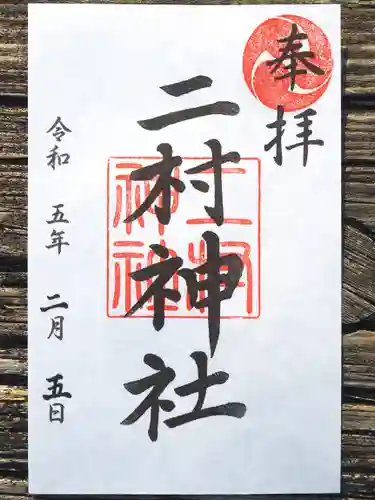 奉拝
二村神社
二村
神社
令和 五年 二月 五日